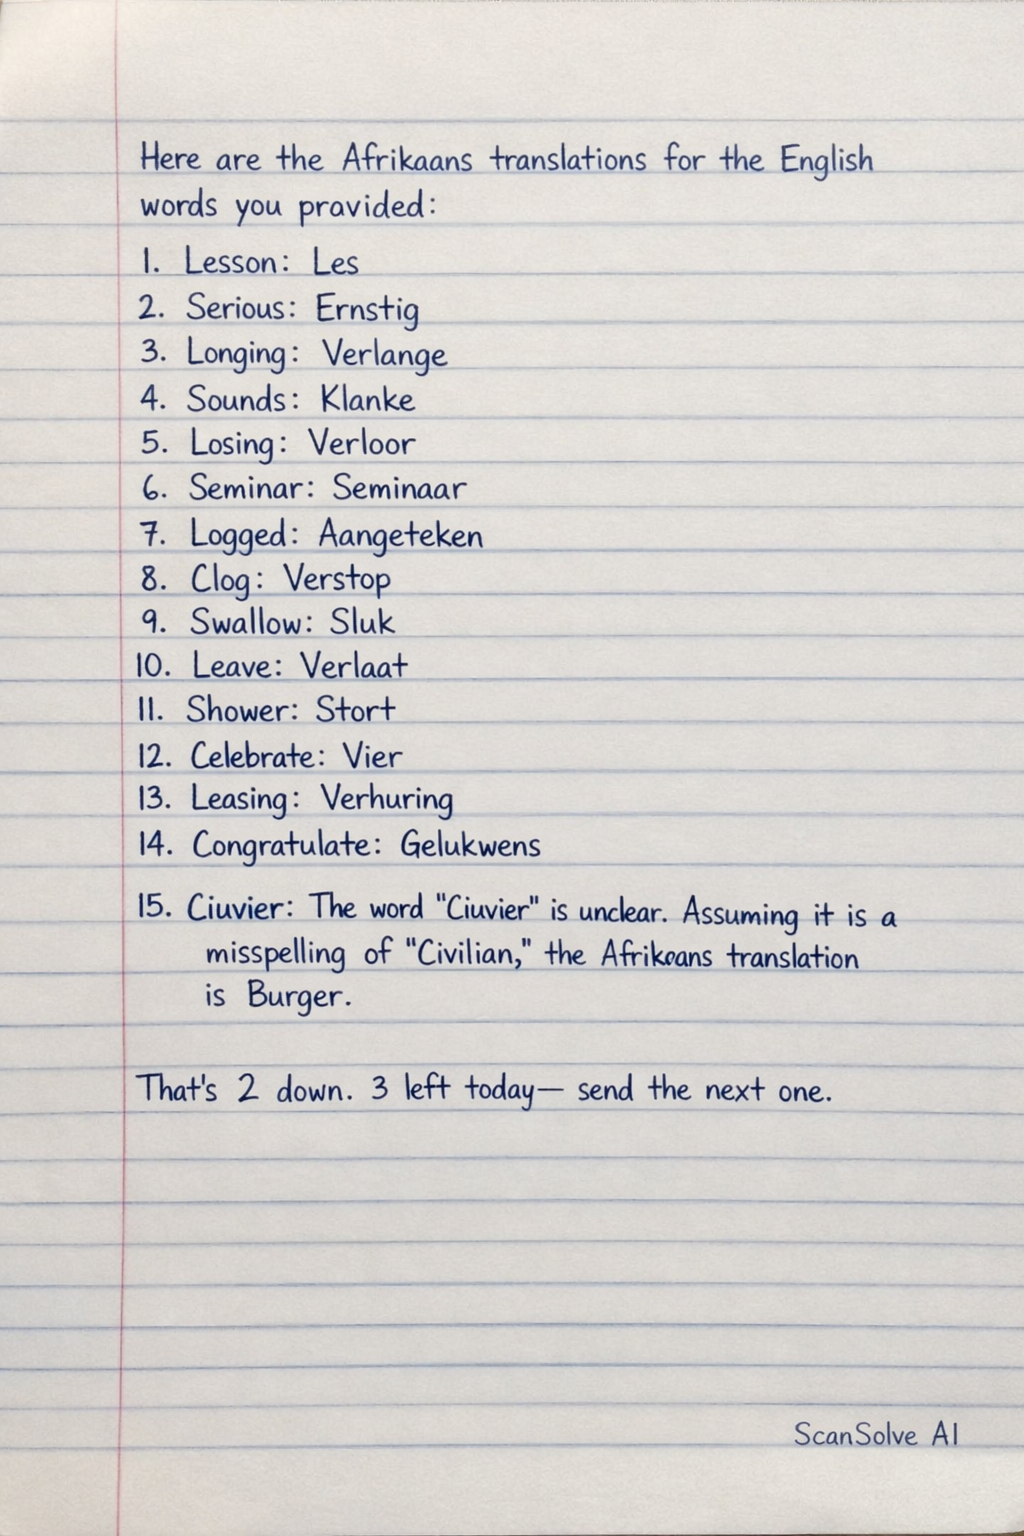 Here are the Afrikaans translations for the English
words you pravided:
1. Lesson: Les
2. Serious: Ernstig
3. Longing: Verlange
4. Sounds: Klanke
5. Losing: Verloor
6. Seminar: Seminaar
7. Logged: Aangeteken
8. Clog: Verstop
9. Swallow: Sluk
10. Leave: Verlaat
11. Shower: Stort
12. Celebrate: Vier
13. Leasing: Verhuring
14. Congratulate: Gelukwens
15. Ciuvier: The word "Ciuvier" is unclear. Assuming it is a
misspelling of "Civilian," the Afrikoans translation
is Burger.
That's 2 down. 3 left today— send the next one.
ScanSolve AI